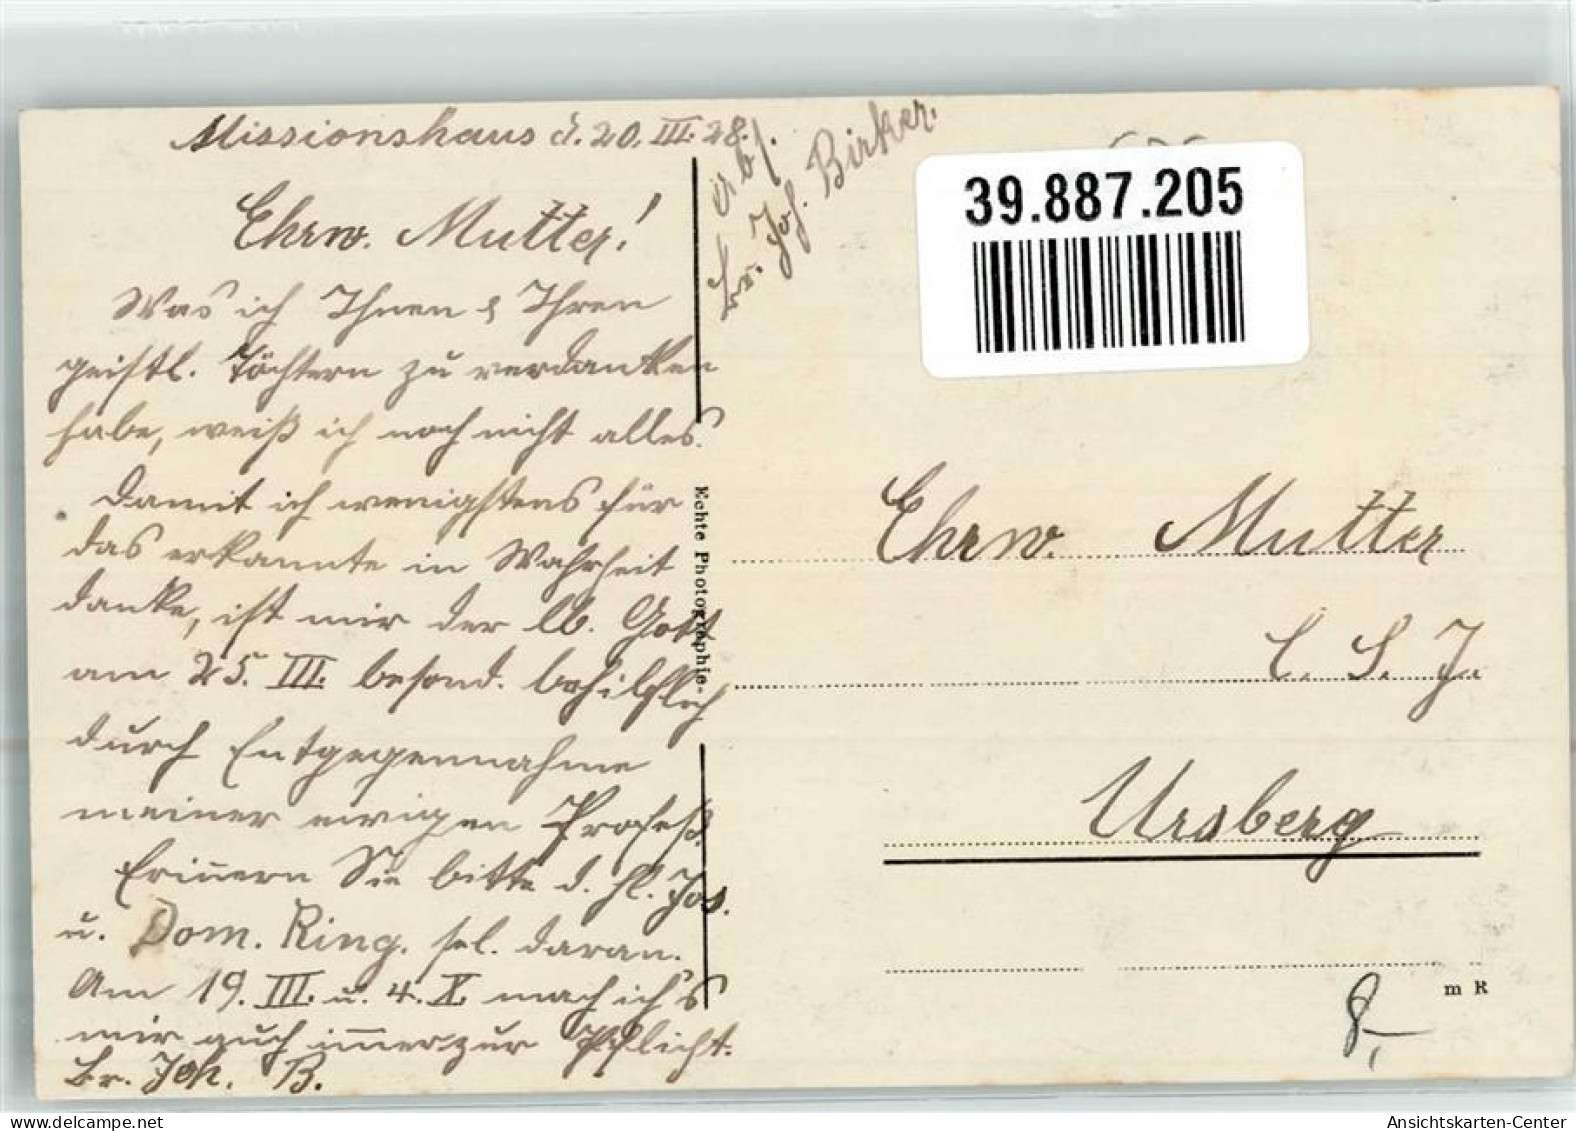 Missionshaus d. 20. III. 28.
Ehrw. Mutter!
Was ich Ihnen & Ihren
geistl. Töchtern zu verdanken
habe, weiß ich noch nicht alles.
Damit ich wenigstens für
das erkannte in Wahrheit
danke, ist mir der lb. Gott
am 25. III. besond. behilflich
durch Entgegennahme
meiner ewigen Profeß.
Erinnern Sie bitte d. hl. Jos.
u. Dom. Ring. sel. daran.
Am 19. III. u. 4. X. mach ich's
mir auch immer zur Pflicht.
Br. Joh. B.
Abs.
Br. Joh. Birker.
39.887.205
Echte Photographie-
Ehrw. Mutter
C. S. J.
Ursberg
m R
8,-
delcampe.net
Ansichtskarten-Center